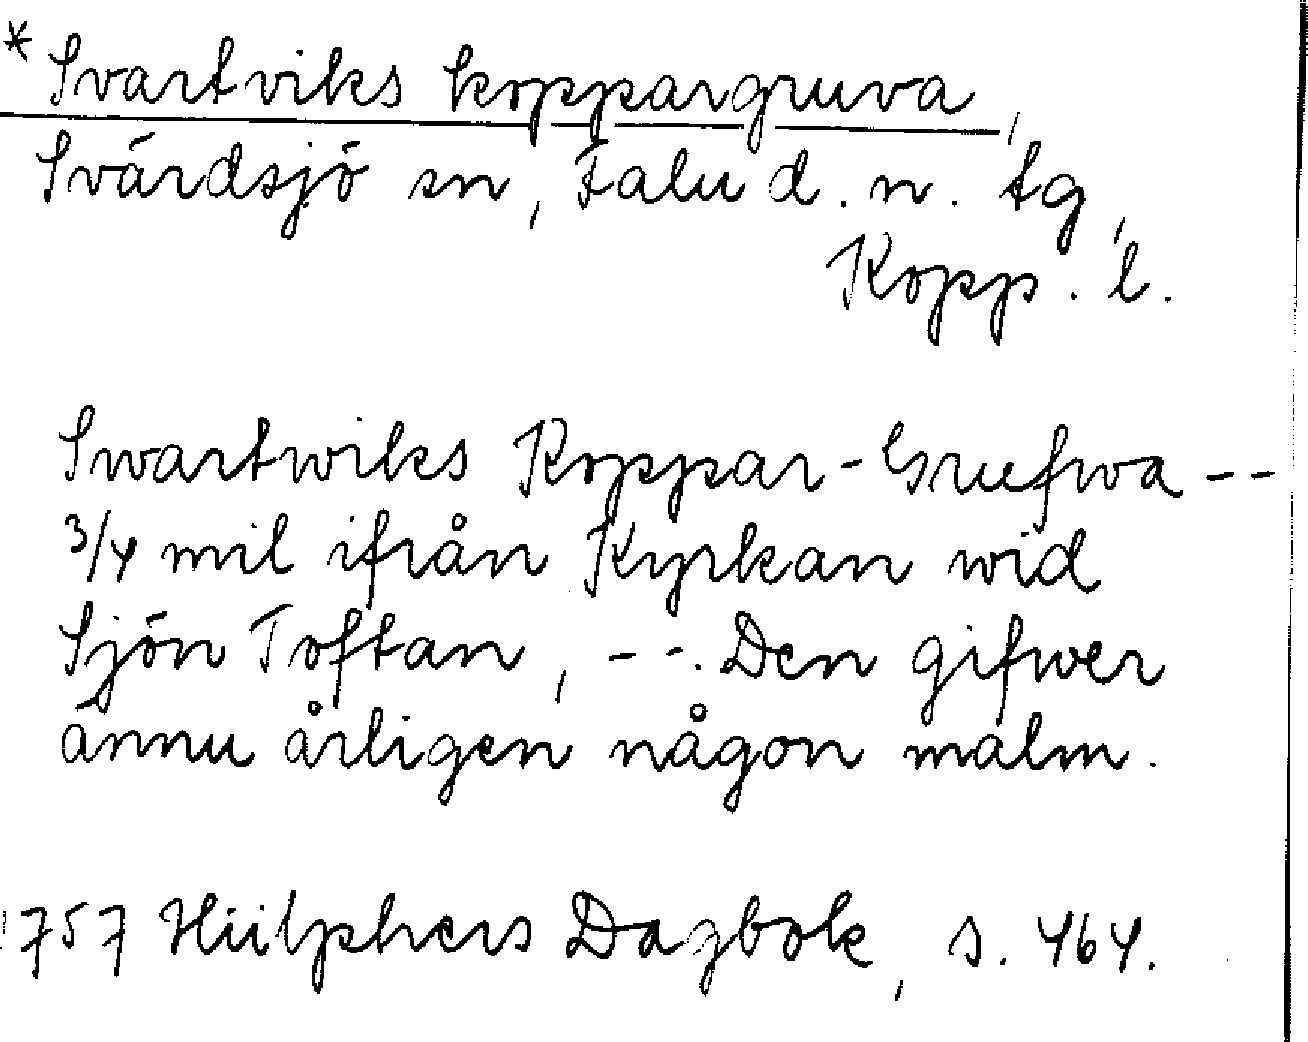 * Svartviks koppargruva,
Svärdsjö sn, Falu d. n. tg,
Kopp. l.
Swartwiks Koppar-Grufwa --
3/4 mil ifrån Kyrkan wid
Sjön Toftan, --. Den gifwer
ännu årligen någon malm.
1757 Hülphers Dagbok, s. 464.